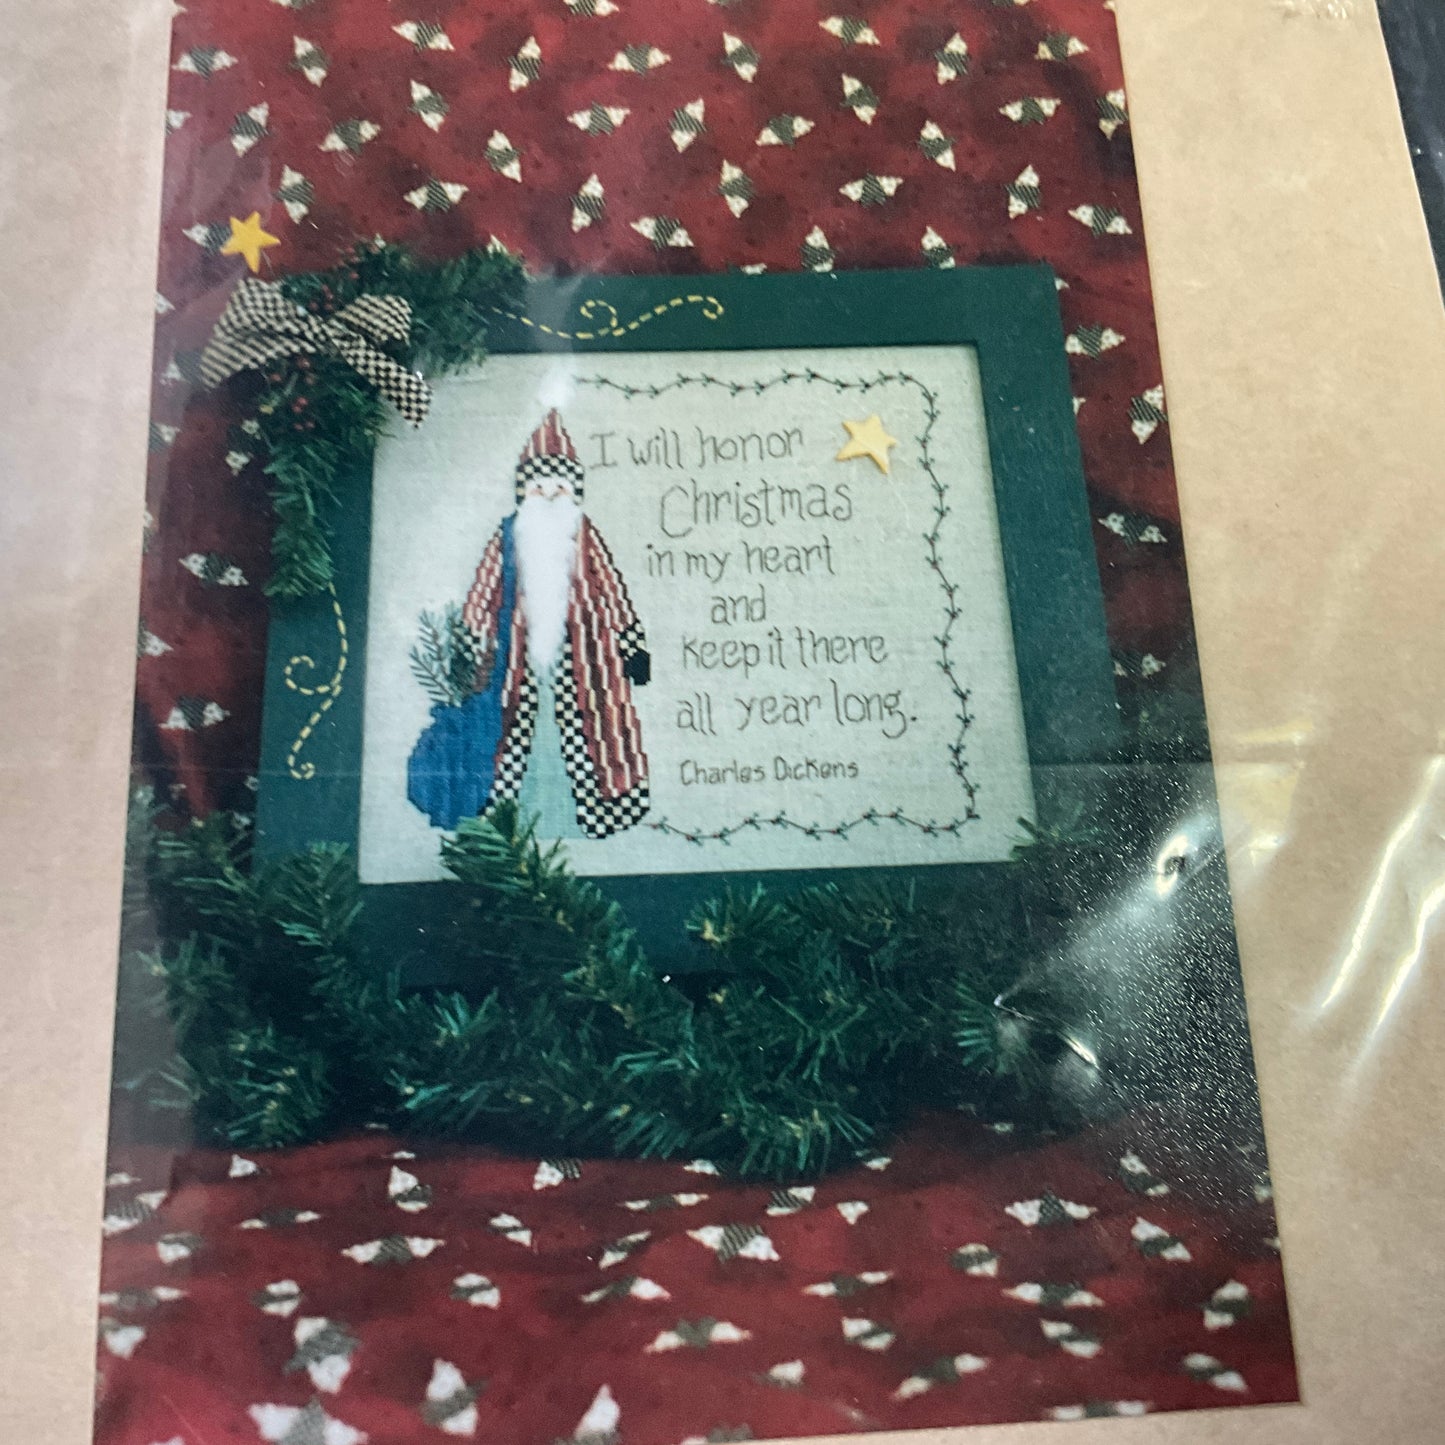 I will honor
Christmas
in my heart
and
keep it there
all year long.
Charles Dickens